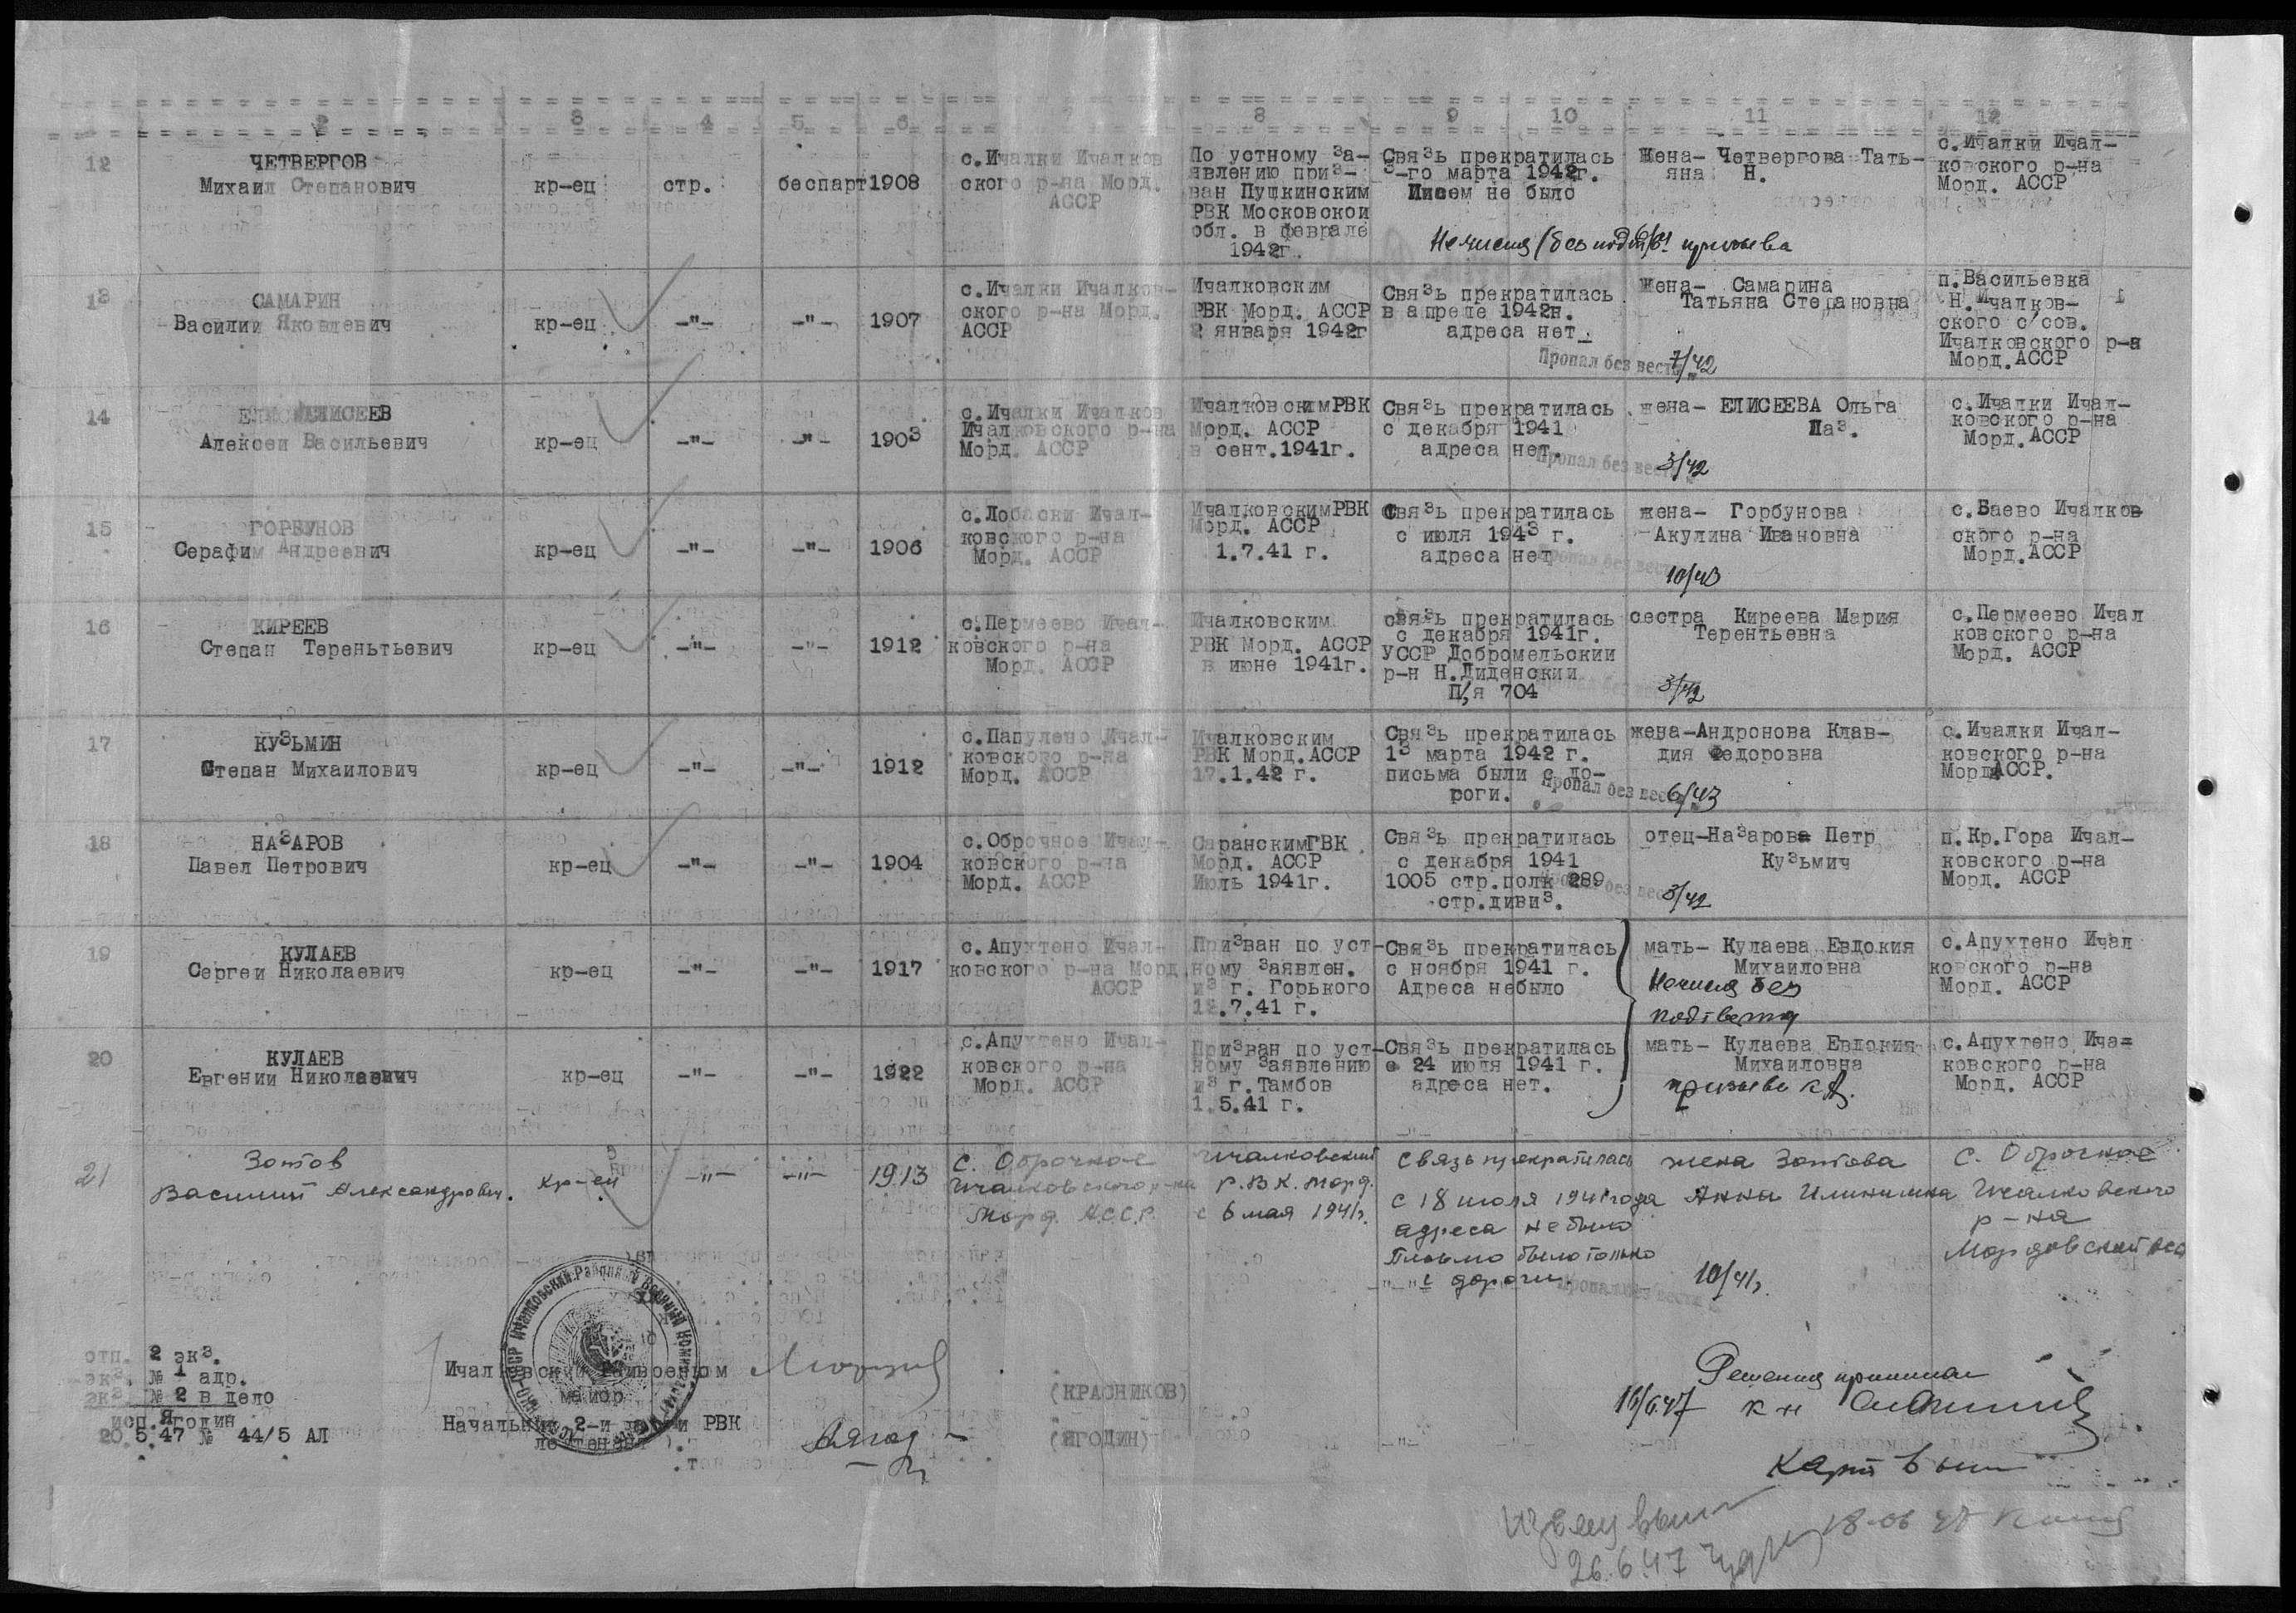 2 3 4 5 6 8 9 10 11 12
12
ЧЕТВЕРГОВ
Михаил Степанович
кр-ец
стр.
беспарт
1908
с.Ичалки Ичалков
ского р-на Морд.
АССР
По устному за-
явлению приз-
ван Пушкинским
РВК Московской
обл. в феврале
1942г.
Связь прекратилась
3-го марта 1942г.
Писем не было
Жена- Четвергова Тать-
яна Н.
с.Ичалки Ичал-
ковского р-на
Морд. АССР
призыва
13
САМАРИН
Василий Яковлевич
кр-ец
-"-
-"-
1907
с.Ичалки Ичалков-
ского р-на Морд.
АССР
Ичалковским
РВК Морд. АССР
2 января 1942г
Связь прекратилась
в апреле 1942г.
адреса нет.
Пропал без вести 7/42
Жена- Самарина
Татьяна Степановна
п.Васильевка
Н.Ичалков-
ского с/сов.
Ичалковского р-а
Морд.АССР
14
ЕЛИСЕЕВ
Алексеи Васильевич
кр-ец
-"-
-"-
1903
с.Ичалки Ичалков
Ичалковского р-на
Морд. АССР
Ичалковским РВК
Морд. АССР
в сент.1941г.
Связь прекратилась
с декабря 1941
адреса нет.
Пропал без вести 3/42
жена- ЕЛИСЕЕВА Ольга
Лаз.
с.Ичалки Ичал-
ковского р-на
Морд.АССР
15
ГОРБУНОВ
Серафим Андреевич
кр-ец
-"-
-"-
1906
с.Лобаски Ичал-
ковского р-на
Морд. АССР
Ичалковским РВК
Морд. АССР
1.7.41 г.
Связь прекратилась
с июля 1943 г.
адреса нет
Пропал без вести 10/43
жена- Горбунова
Акулина Ивановна
с.Баево Ичалков
ского р-на
Морд.АССР
16
КИРЕЕВ
Степан Тереньтьевич
кр-ец
-"-
-"-
1912
с.Пермеево Ичал-
ковского р-на
Морд. АССР
Ичалковским
РВК Морд. АССР
в июне 1941г.
связь прекратилась
с декабря 1941г.
УССР Добромельский
р-н Н.Диденский
П/я 704
3/42
сестра Киреева Мария
Терентьевна
с.Пермеево Ичал
ковского р-на
Морд. АССР
17
КУЗЬМИН
Степан Михаилович
кр-ец
-"-
-"-
1912
с.Папулево Ичал-
ковского р-на
Морд. АССР
Ичалковским
РВК Морд.АССР
17.1.42 г.
Связь прекратилась
13 марта 1942 г.
письма были с до-
роги.
Пропал без вести 6/43
жена-Андронова Клав-
дия Федоровна
с.Ичалки Ичал-
ковского р-на
Морд АССР.
18
НАЗАРОВ
Павел Петрович
кр-ец
-"-
-"-
1904
с.Оброчное Ичал-
ковского р-на
Морд. АССР
Саранским ГВК
Морд. АССР
Июль 1941г.
Связь прекратилась
с декабря 1941
1005 стр.полк 289
стр.дивиз.
3/42
отец-Назарова Петр
Кузьмич
п.Кр.Гора Ичал-
ковского р-на
Морд. АССР
19
КУЛАЕВ
Сергеи Николаевич
кр-ец
-"-
-"-
1917
с.Апухтено Ичал-
ковского р-на Морд.
АССР
Призван по уст-
ному заявлен.
из г. Горького
12.7.41 г.
Связь прекратилась
с ноября 1941 г.
Адреса небыло
мать- Кулаева Евдокия
Михаиловна
с.Апухтено Ичал
ковского р-на
Морд. АССР
20
КУЛАЕВ
Евгении Николаевич
кр-ец
-"-
-"-
1922
с.Апухтено Ичал-
ковского р-на
Морд. АССР
Призван по уст-
ному заявлению
из г.Тамбов
1.5.41 г.
Связь прекратилась
с 24 июля 1941 г.
адреса нет.
мать- Кулаева Евдокия
Михаиловна
с.Апухтено Ича-
ковского р-на
Морд. АССР
21
Зотов
Василий Александрович.
кр-ец
-"-
-"-
1913
с. Оброчное
Ичалковского р-на
Морд. А.С.С.Р.
Ичалковский
Р.В.К. Морд.
с 6 мая 1941г.
связь прекратилась
с 18 июля 1941 года
адреса не было
Письмо было только
с дороги.
Пропал без вести
10/41г.
жена Зотова
Анна Илинична
с. Оброчное
Ичалковского
р-на
Мордовской
отп. 2 экз.
экз. № 1 адр.
экз. № 2 в дело
исп.Ягодин
20.5.47 № 44/5 АЛ
Ичалковский Райвоенком
майор
(КРАСНИКОВ)
Начальник 2-й части РВК
лейтенант
(ЯГОДИН)
Решения принимал
16/6.47
18.06 47
26.6.47